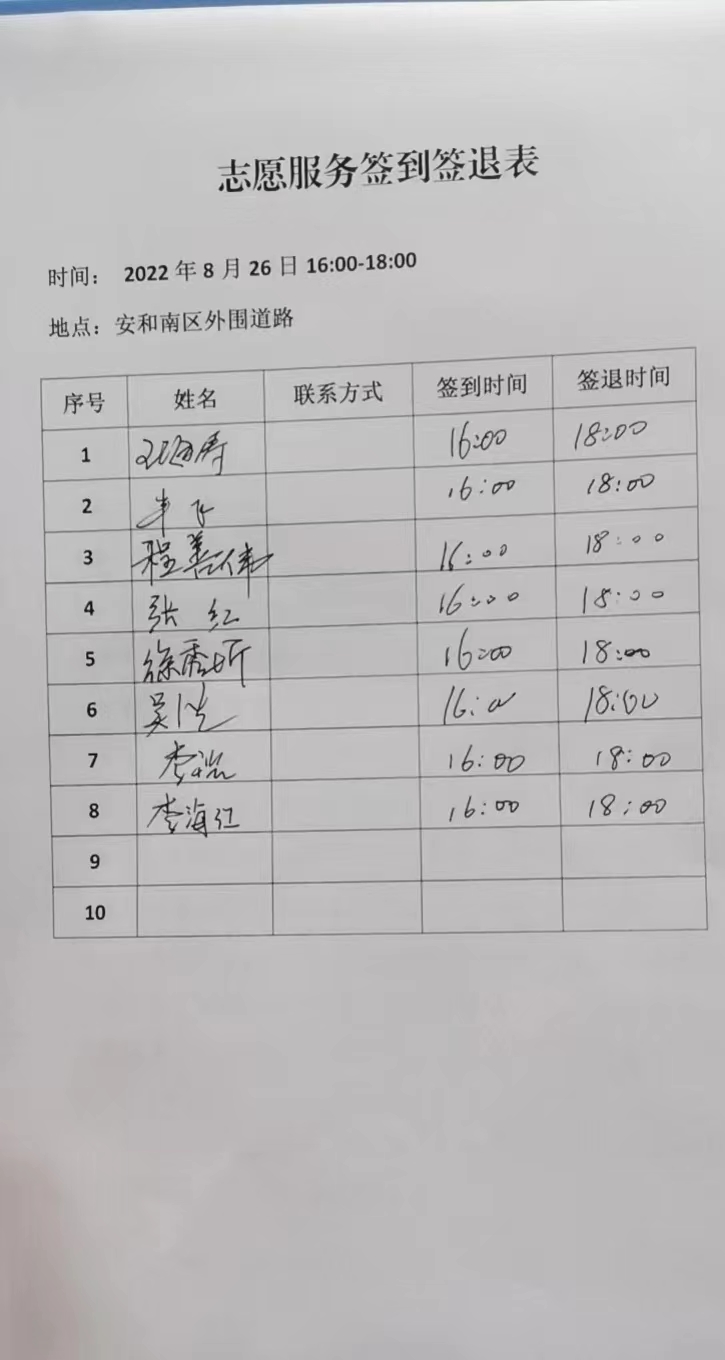 志愿服务签到签退表
时间： 2022 年 8 月 26 日 16:00-18:00
地点：安和南区外围道路
序号 姓名 联系方式 签到时间 签退时间
1 16:00 18:00
2 16:00 18:00
3 程善伟 16:00 18:00
4 张红 16:00 18:00
5 16:00 18:00
6 16:00 18:00
7 李瑞 16:00 18:00
8 李海红 16:00 18:00
9
10